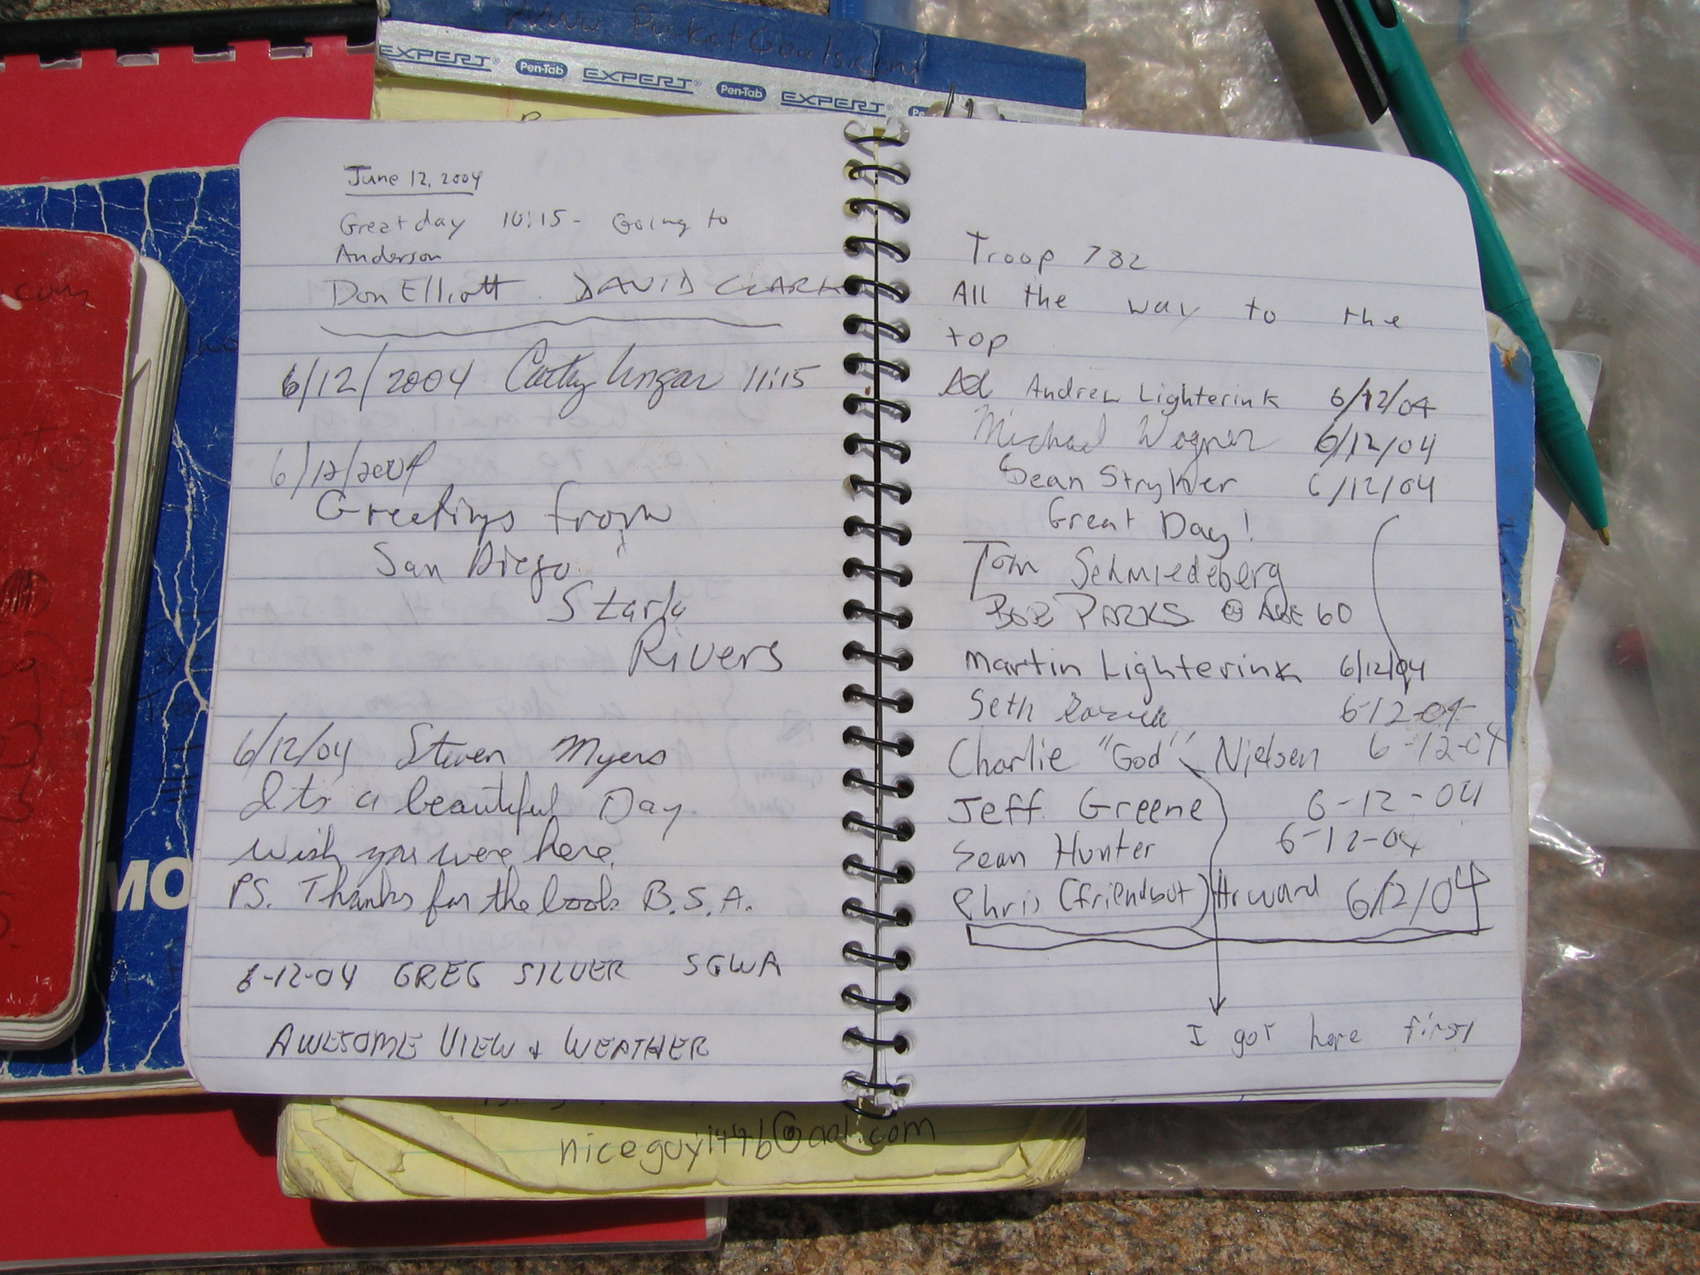 www.PocketGoals.com
EXPERT Pen-Tab EXPERT Pen-Tab EXPERT
June 12, 2004
Great day 10:15 - Going to
Anderson
Don Elliott DAVID CLARK
6/12/2004 Cathy Ungar 11:15
6/12/2004
Greetings from
San Diego
Stark
Rivers
6/12/04 Steven Myers
Its a beautiful Day
wish you were here.
PS. Thanks for the book B.S.A.
6-12-04 GREG SILVER SGWA
AWESOME VIEW + WEATHER
Troop 782
All the way to the
top
Andrew Lighterink 6/12/04
Michael Wagner 6/12/04
Sean Stryker 6/12/04
Great Day!
Tom Schmiedeberg
BOB PARKS @ AGE 60
Martin Lighterink 6/12/04
Seth 6-12-04
Charlie "God" Nielsen 6-12-04
Jeff Greene 6-12-04
Sean Hunter 6-12-04
Chris (friendbut) Howard 6/12/04
I got here first
niceguy1496@aol.com
.com
MO